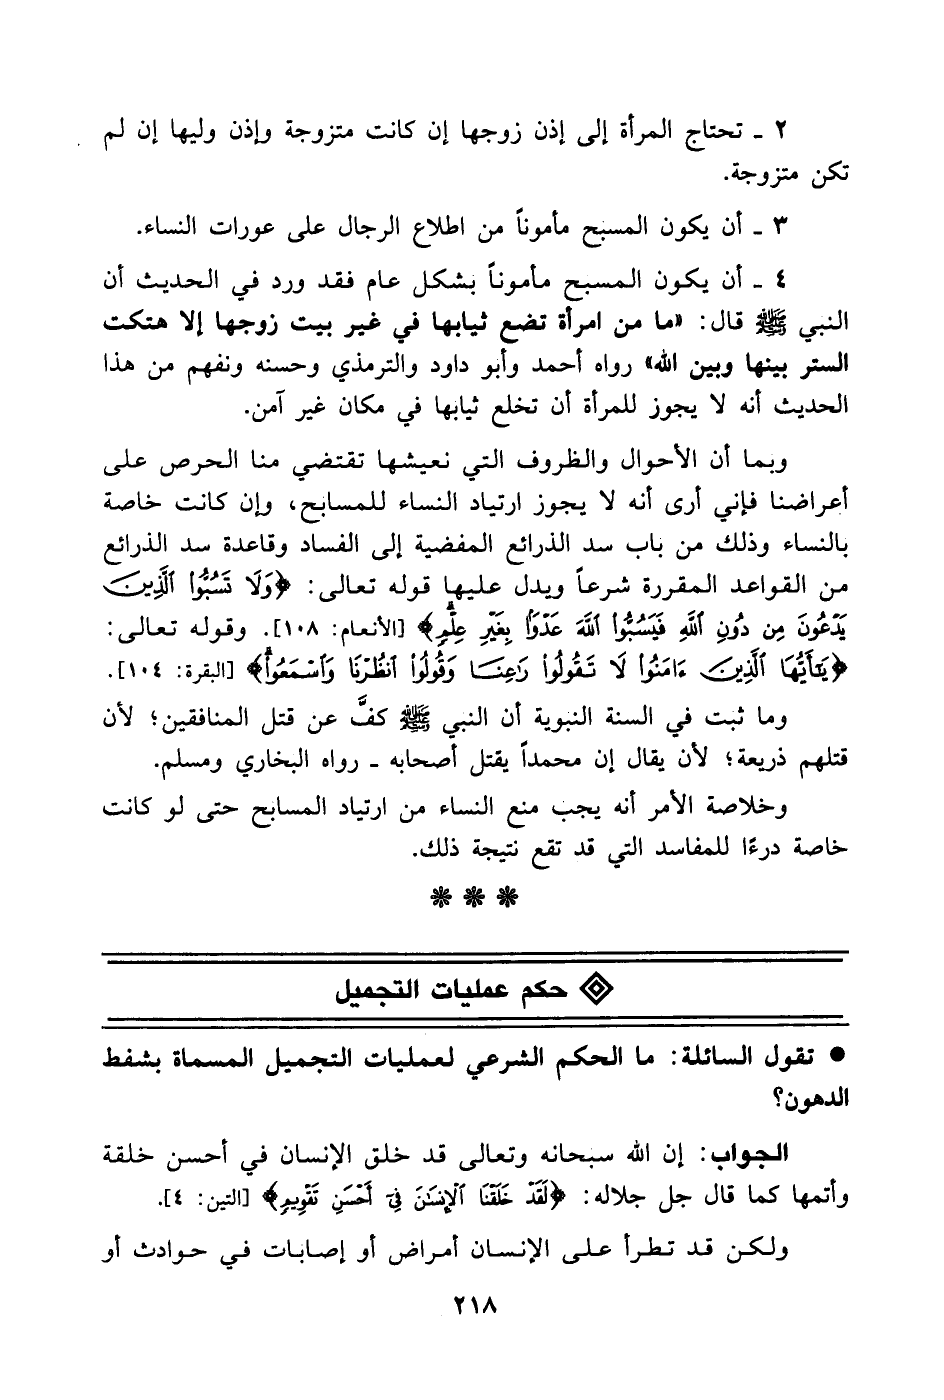 ٢ ـ تحتاج المرأة إلى إذن زوجها إن كانت متزوجة وإذن وليها إن لم
تكن متزوجة.
٣ ـ أن يكون المسبح مأموناً من اطلاع الرجال على عورات النساء.
٤ ـ أن يكون المسبح مأموناً بشكل عام فقد ورد في الحديث أن
النبي ﷺ قال: «ما من امرأة تضع ثيابها في غير بيت زوجها إلا هتكت
الستر بينها وبين الله» رواه أحمد وأبو داود والترمذي وحسنه ونفهم من هذا
الحديث أنه لا يجوز للمرأة أن تخلع ثيابها في مكان غير آمن.
وبما أن الأحوال والظروف التي نعيشها تقتضي منا الحرص على
أعراضنا فإني أرى أنه لا يجوز ارتياد النساء للمسابح، وإن كانت خاصة
بالنساء وذلك من باب سد الذرائع المفضية إلى الفساد وقاعدة سد الذرائع
من القواعد المقررة شرعاً ويدل عليها قوله تعالى: ﴿وَلَا تَسُبُّوا۟ ٱلَّذِينَ
يَدْعُونَ مِن دُونِ ٱللَّهِ فَيَسُبُّوا۟ ٱللَّهَ عَدْوًۢا بِغَيْرِ عِلْمٍ﴾ [الأنعام: ١٠٨]. وقوله تعالى:
﴿يَٰٓأَيُّهَا ٱلَّذِينَ ءَامَنُوا۟ لَا تَقُولُوا۟ رَٰعِنَا وَقُولُوا۟ ٱنظُرْنَا وَٱسْمَعُوا۟﴾ [البقرة: ١٠٤].
وما ثبت في السنة النبوية أن النبي ﷺ كفَّ عن قتل المنافقين؛ لأن
قتلهم ذريعة؛ لأن يقال إن محمداً يقتل أصحابه ـ رواه البخاري ومسلم.
وخلاصة الأمر أنه يجب منع النساء من ارتياد المسابح حتى لو كانت
خاصة درءًا للمفاسد التي قد تقع نتيجة ذلك.
❋ ❋ ❋
حكم عمليات التجميل
● تقول السائلة: ما الحكم الشرعي لعمليات التجميل المسماة بشفط
الدهون؟
الجواب: إن الله سبحانه وتعالى قد خلق الإنسان في أحسن خلقة
وأتمها كما قال جل جلاله: ﴿لَقَدْ خَلَقْنَا ٱلْإِنسَٰنَ فِىٓ أَحْسَنِ تَقْوِيمٍ﴾ [التين: ٤].
ولكن قد تطرأ على الإنسان أمراض أو إصابات في حوادث أو
٢١٨